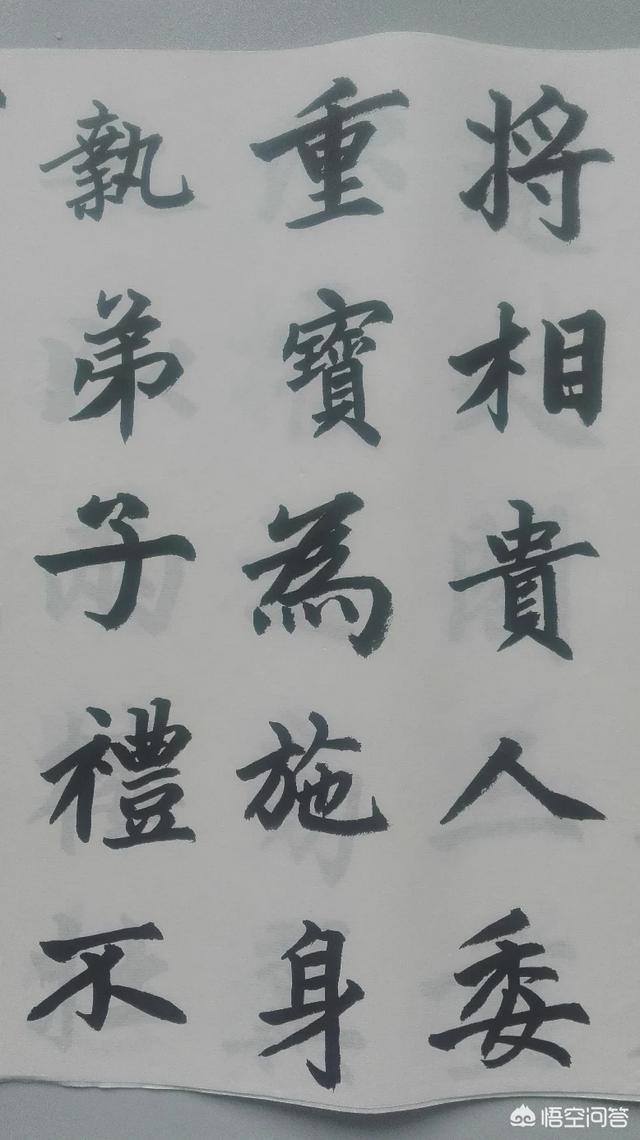 将相貴人委
重寳為施身
執弟子禮不
悟空问答